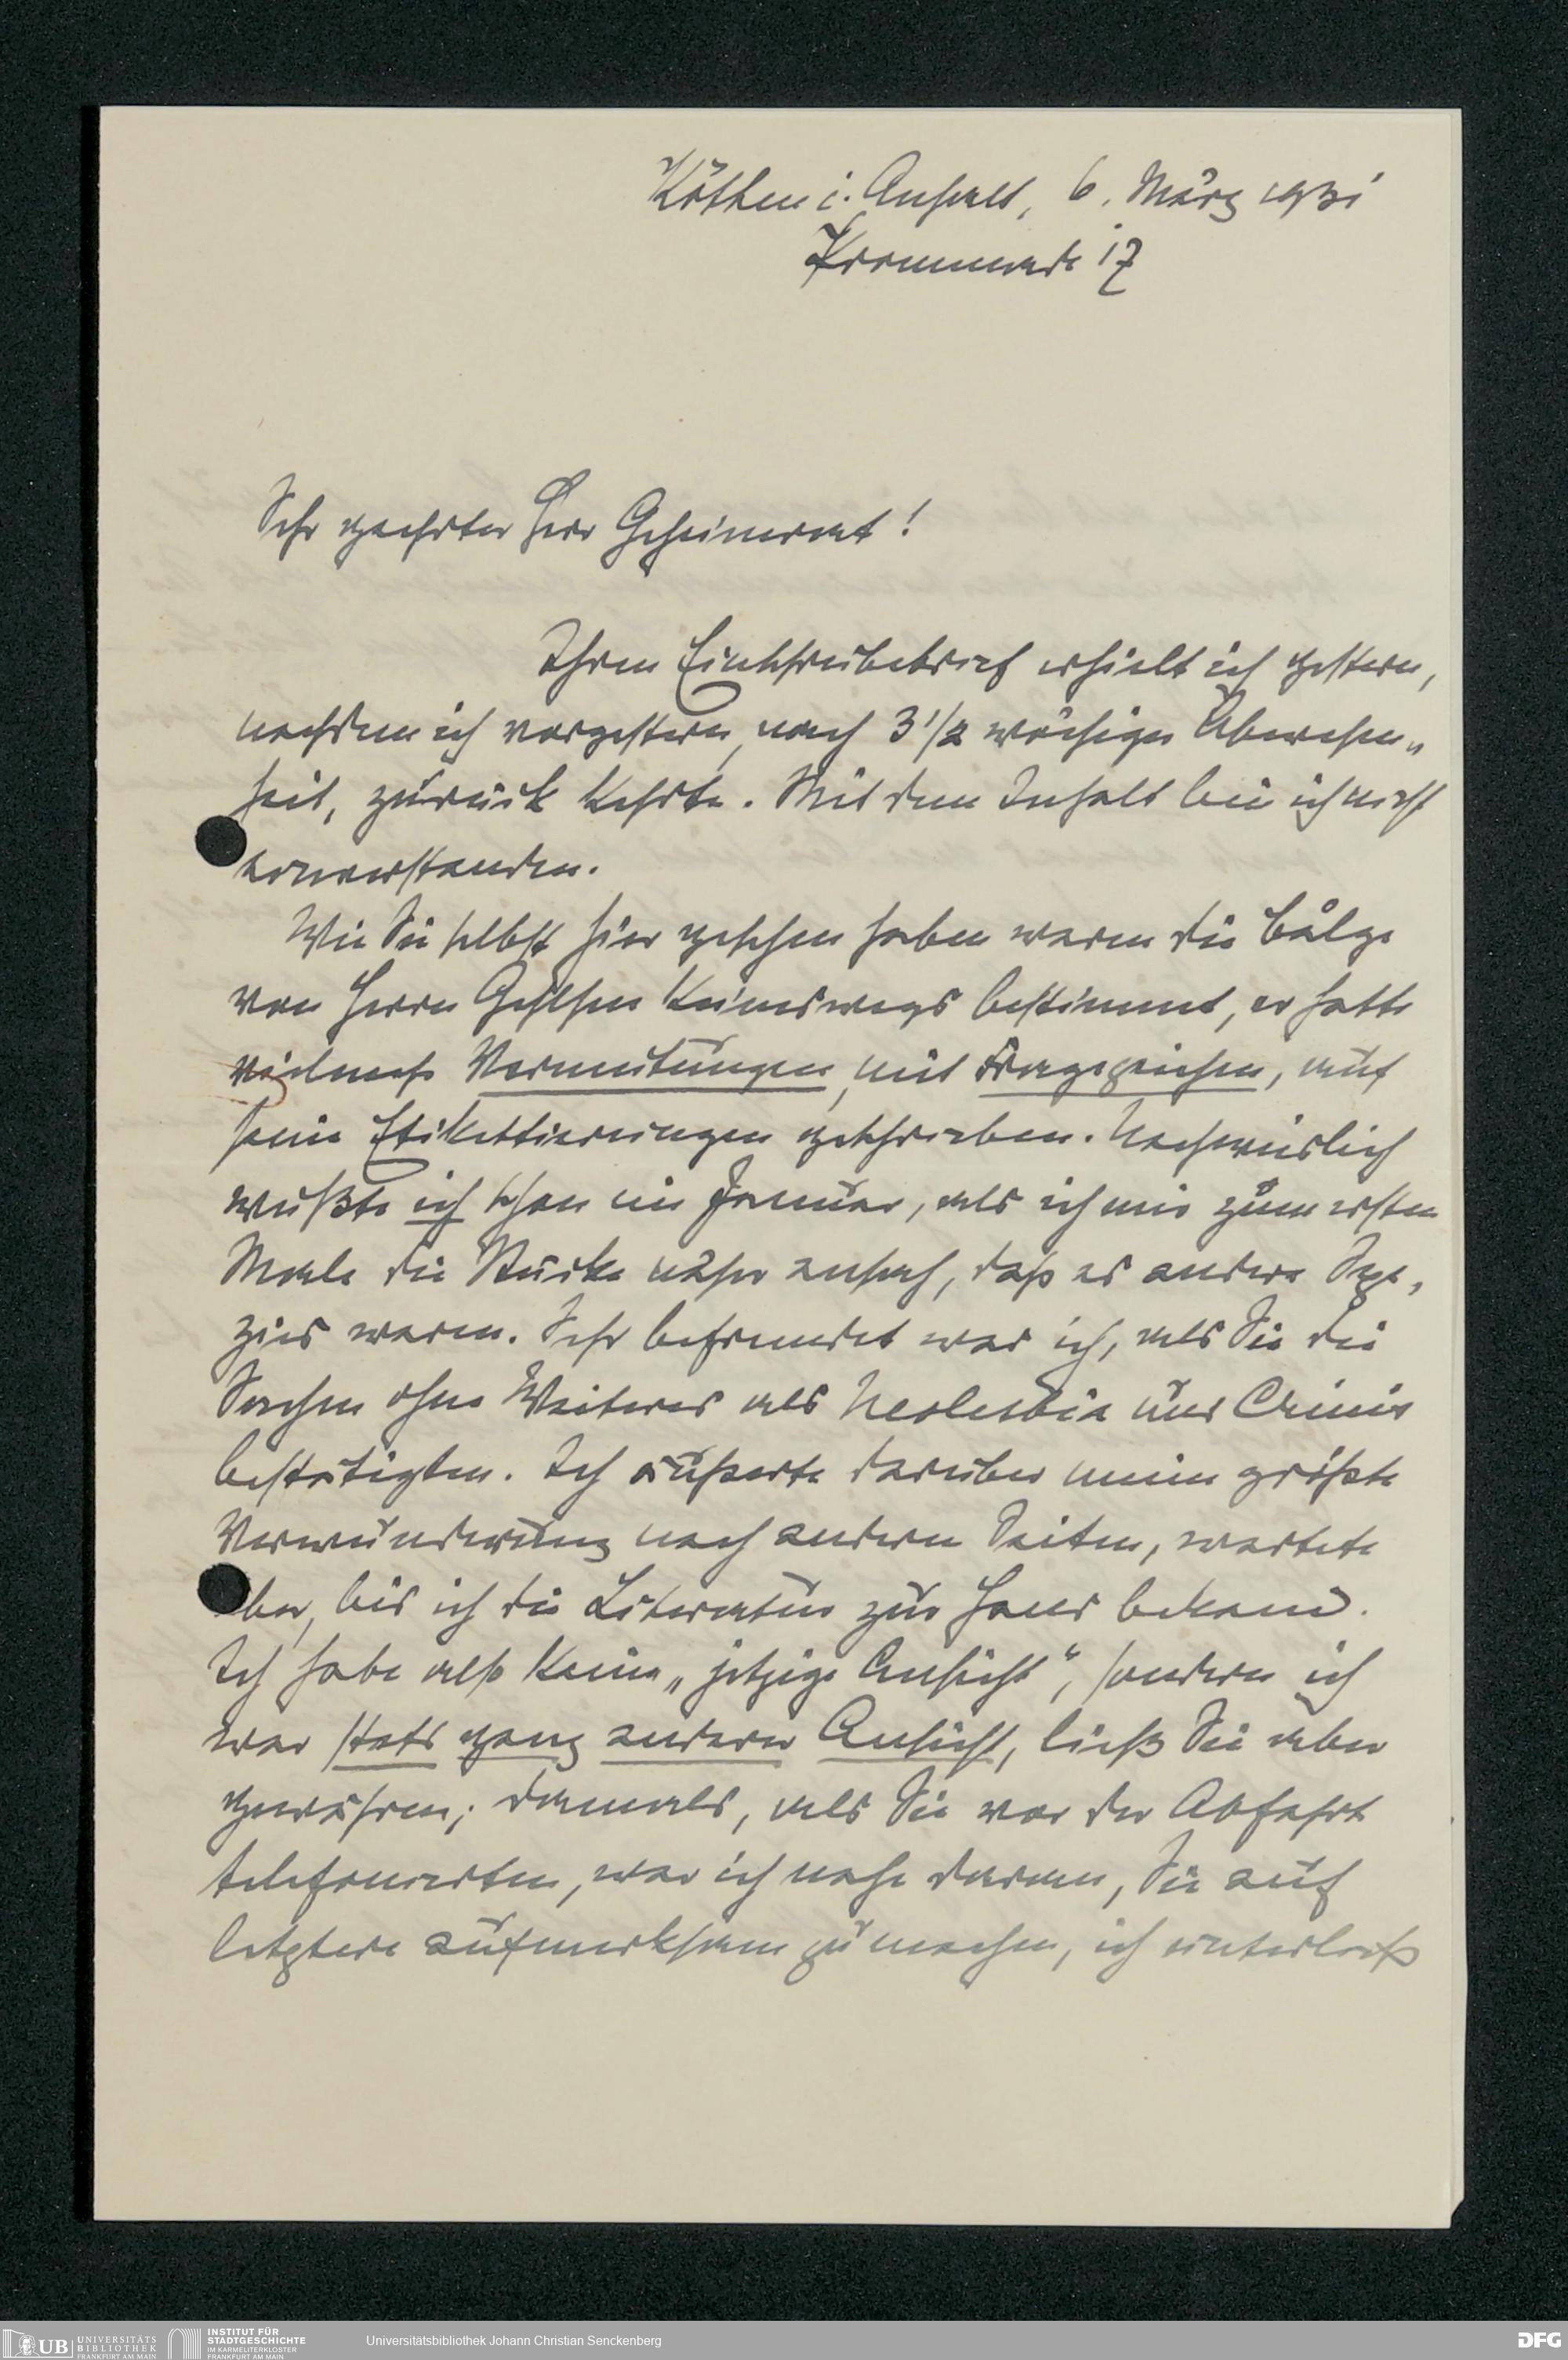 Köthen i. Anhalt, 6. März 1931
Promenade 17
Sehr geehrter Herr Geheimerat!
Ihren Einschreibebrief erhielt ich gestern,
nachdem ich vorgestern, nach 3 1/2 wöchiger Abwesen„
heit, zurück kehrte. Mit dem Inhalt bin ich nicht
einverstanden.
Wie Sie selbst hier gesehen haben waren die Bälge
von Herrn Gehlsen keineswegs bestimmt, er hatte
vielmehr Vermutungen, mit Fragezeichen, auf
seine Etikettierungen geschrieben. Nachweislich
wußte ich schon im Januar, als ich mir zum ersten
Male die Stücke näher ansah, daß es andere Spe„
zies waren. Sehr befremdet war ich, als Sie die
Sachen ohne Weiteres als Neolesbia und Crinis
bestätigten. Ich äußerte darüber meine größte
Verwunderung nach andern Seiten, wartete
aber, bis ich die Literatur zur Hand bekam.
Ich habe also keine „jetzige Ansicht“, sondern ich
war stets ganz anderer Ansicht, ließ Sie aber
gewähren; damals, als Sie vor der Abfahrt
telefonierten, war ich nahe daran, Sie auf
letztere aufmerksam zu machen, ich unterließ
UB UNIVERSITÄTS
BIBLIOTHEK
FRANKFURT AM MAIN
INSTITUT FÜR
STADTGESCHICHTE
IM KARMELITERKLOSTER
FRANKFURT AM MAIN
Universitätsbibliothek Johann Christian Senckenberg
DFG